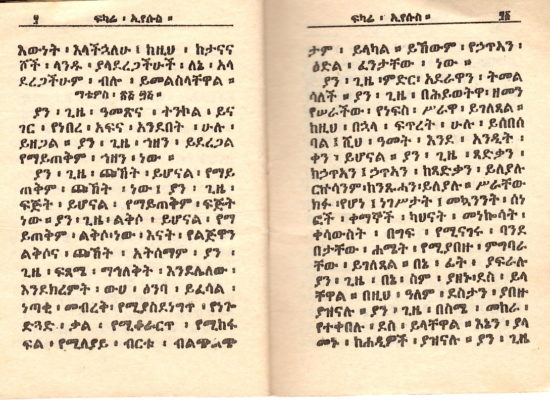 ፶ ፍካሬ ፡ ኢየሱስ ።
እውነት ፡ እላችኋለሁ ፤ ከዚህ ፡ ከታናና
ሾች ፡ ላንዱ ፡ ያላደረጋችሁት ፡ ለኔ ፡ አላ
ደረጋችሁም ፡ ብሎ ፡ ይመልስላቸዋል ።
ማቴዎስ ፡
ያን ፡ ጊዜ ፡ ዓመጽና ፡ ተንኮል ፡ ይና
ገር ፡ የነበረ ፡ አፍና ፡ አንደበት ፡ ሁሉ ፡
ይዘጋል ። ያን ፡ ጊዜ ፡ ኀዘን ፡ ይደረጋል
የማይጠቅም ፡ ኀዘን ፡ ነው ።
ያን ፡ ጊዜ ፡ ጩኸት ፡ ይሆናል ፡ የማይ
ጠቅም ፡ ጩኸት ፡ ነው ፤ ያን ፡ ጊዜ ፡
ፍጅት ፡ ይሆናል ፡ የማይጠቅም ፡ ፍጅት
ነው ። ያን ፡ ጊዜ ፡ ልቅሶ ፡ ይሆናል ፡ የማ
ይጠቅም ፡ ልቅሶ ፡ ነው ፡ እናት ፡ የልጅዋን
ልቅሶና ፡ ጩኸት ፡ አትሰማም ፡ ያን ፡
ጊዜ ፡ ፍጻሜ ፡ ማኅለቅት ፡ እንደሌለው ፡
እንደክረምት ፡ ውሀ ፡ ዕንባ ፡ ይፈሳል ፡
ነጣቂ ፡ መብረቅ ፡ የሚያስደነግጥ ፡ የነጐ
ድጓድ ፡ ቃል ፡ የሚቆራርጥ ፡ የሚከፋ
ፍል ፡ የሚለያይ ፡ ብርቱ ፡ ብልጭጭ
ፍካሬ ፡ ኢየሱስ ።
ታም ፡ ይላካል ። ይኸውም ፡ የኃጥአን ፡
ዕድል ፡ ፈንታቸው ፡ ነው ።
ያን ፡ ጊዜ ፡ ምድር ፡ አደራዋን ፡ ትመል
ሳለች ። ያን ፡ ጊዜ ፡ በሕይወትዋ ፡ ዘመን
የሠራችው ፡ የነፍስ ፡ ሥራዋ ፡ ይገለጻል ።
ከዚህ ፡ በኋላ ፡ ፍጥረት ፡ ሁሉ ፡ ይሰበሰ
ባል ፤ ሺህ ፡ ዓመት ፡ እንደ ፡ አንዲት ፡
ቀን ፡ ይሆናል ። ያን ፡ ጊዜ ፡ ጻድቃን ፡
ከኃጥአን ፤ ኃጥአን ፡ ከጻድቃን ፡ ይለያሉ
ርኩሳንም ፡ ከንጹሓን ፡ ይለያሉ ። ሥራቸው
ከፉ ፡ የሆነ ፤ ነገሥታት ፤ መኳንንት ፡ ሰነ
ፎች ፡ ቀማኞች ፡ ካህናት ፡ መነኰሳት ፡
ቀሳውስት ፡ በግፍ ፡ የሚናገሩ ፡ ባንደ
በታቸው ፡ ሐሜት ፡ የሚያበዙ ፡ ምግባራ
ቸው ፡ ይገለጻል ። በኔ ፡ ፊት ፡ ያፍራሉ
ያን ፡ ጊዜ ፡ በኔ ፡ ስም ፡ ያዘኑ ፡ ደስ ፡ ይላ
ቸዋል ። በዚህ ፡ ዓለም ፡ ደስታን ፡ ያበዙ
ያዝናሉ ። ያን ፡ ጊዜ ፡ በስሜ ፡ መከራ ፡
የተቀበሉ ፡ ደስ ፡ ይላቸዋል ። እኔን ፡ ያላ
መኑ ፡ ከሐዲዎች ፡ ያዝናሉ ። ያን ፡ ጊዜ